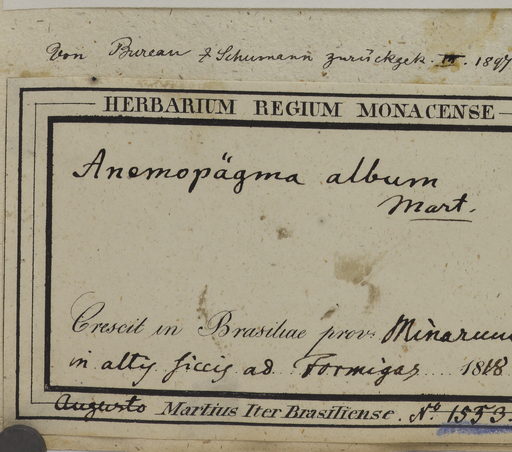 Von Bureau & Schumann zurückgek. III. 1897
HERBARIUM REGIUM MONACENSE
Anemopägma album
Mart.
Crescit in Brasiliae prov. Minarum
in altis siccis ad Formigas 1818
Augusto Martius Iter Brasiliense. No 1553.